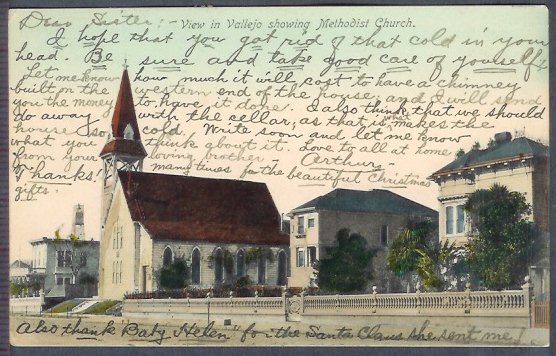 Dear Sister:-
View in Vallejo showing Methodist Church.
I hope that you got rid of that cold in your
head. Be sure and take good care of yourself
Let me know how much it will cost to have a chimney
built on the western end of the house, and I will send
you the money to have it done. I also think that we should
do away with the cellar, as that is what makes the
house so cold. Write soon and let me know
what you think about it. Love to all at home
from your loving brother Arthur.-
Thanks many times for the beautiful Christmas
gifts.
Also thank "Baby Helen" for the Santa Claus she sent me.